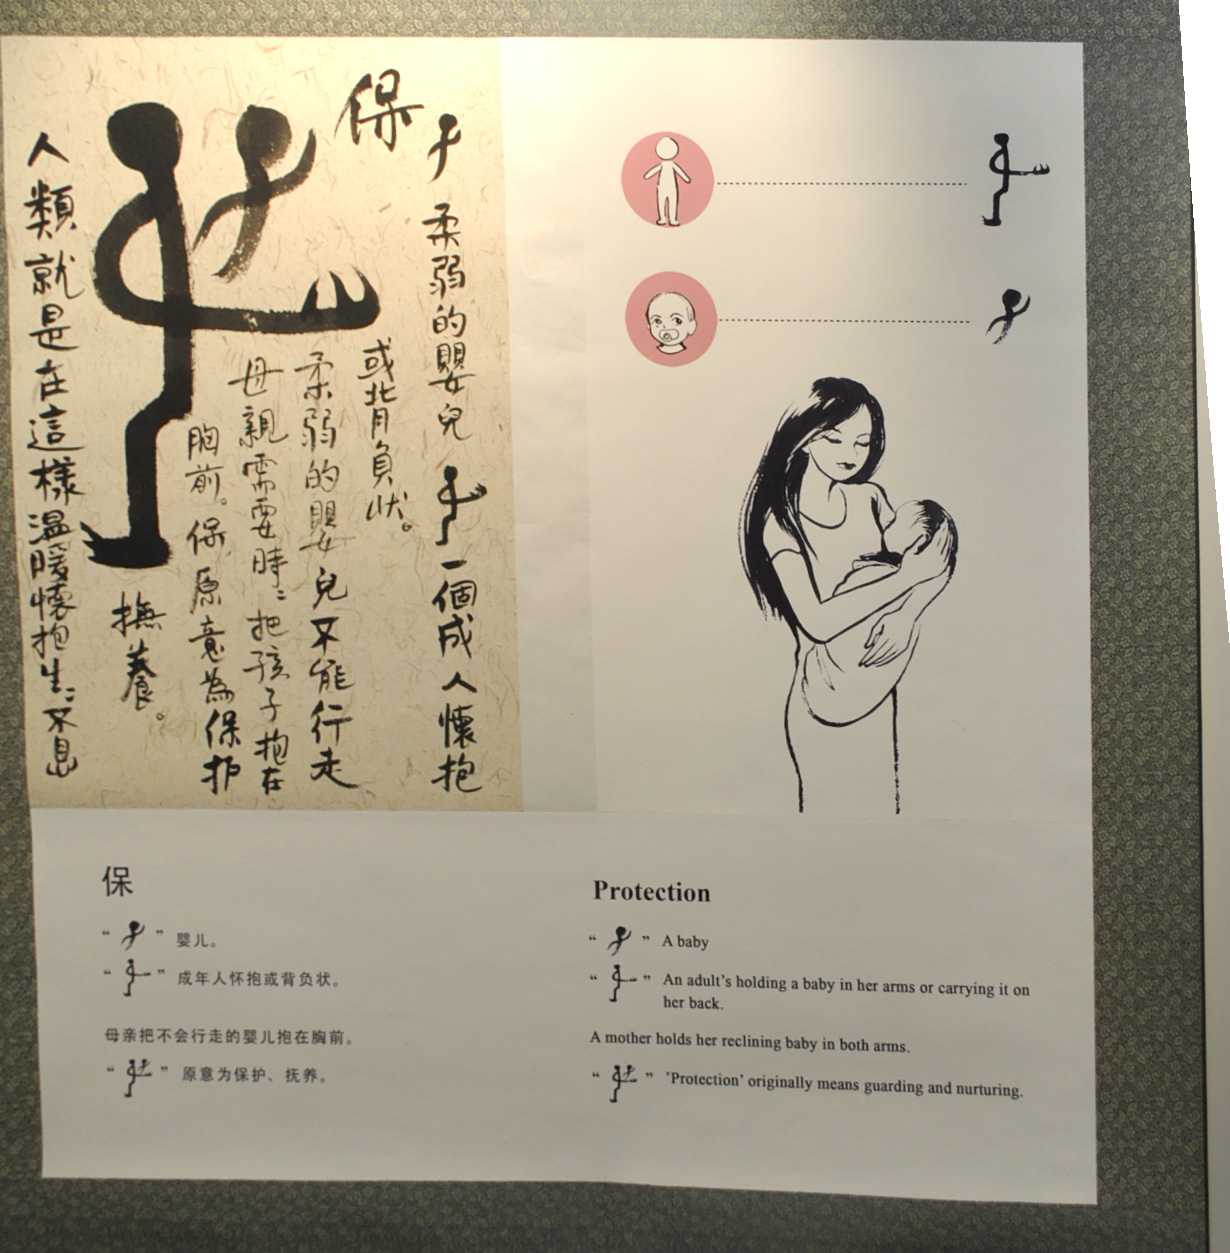 保
柔弱的嬰兒 一個成人懷抱
或背負狀。
柔弱的嬰兒不能行走
母親需要時〻把孩子抱在
胸前。保原意為保护
撫養。
人類就是在這樣溫暖懷抱生〻不息
保
“ ” 婴儿。
“ ” 成年人怀抱或背负状。
母亲把不会行走的婴儿抱在胸前。
“ ” 原意为保护、抚养。
Protection
“ ” A baby
“ ” An adult's holding a baby in her arms or carrying it on
her back.
A mother holds her reclining baby in both arms.
“ ” 'Protection' originally means guarding and nurturing.